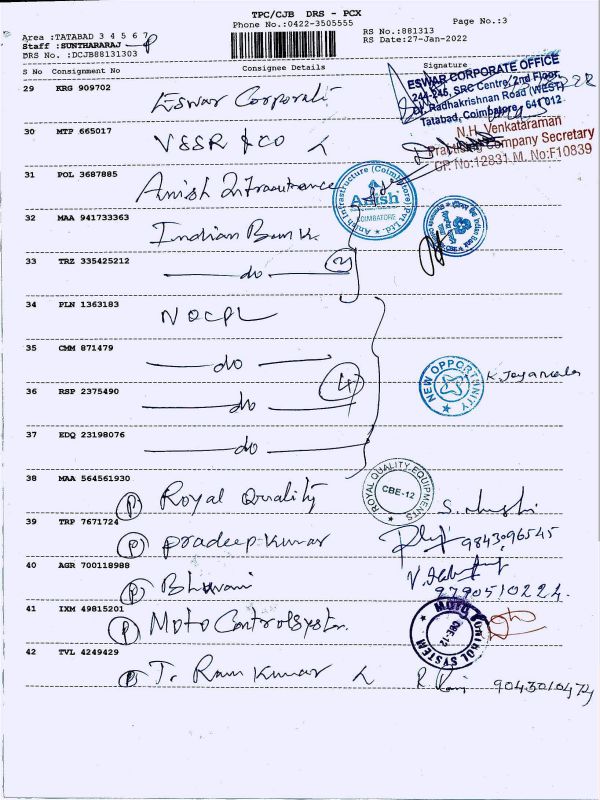 TPC/CJB DRS - PCX
Phone No.:0422-3505555
Page No.:3
Area :TATABAD 3 4 5 6 7
Staff :SUNTHARARAJ - P
DRS No. :DCJB88131303
RS No.:881313
RS Date:27-Jan-2022
S No Consignment No Consignee Details Signature
29 KRG 909702 Eswar Corporate
ESWAR CORPORATE OFFICE
244-246, SRC Centre, 2nd Floor,
Dr. Radhakrishnan Road (WEST)
Tatabad, Coimbatore - 641 012
30 MTP 665017 VSSR & CO
N.H. Venkataraman
Practising Company Secretary
CP. No:12831 M. No:F10839
31 POL 3687885 Anish Infrastructure
Anish Infrastructure (Coimbatore) Pvt Ltd.
Anish
COIMBATORE
32 MAA 941733363 Indian Bank
33 TRZ 335425212 do 2
34 PLN 1363183 NOCPL
35 CMM 871479 do
NEW OPPORTUNITY
K. Jeyamala
36 RSP 2375490 do 4
37 EDQ 23198076 do
38 MAA 564561930 P Royal Quality
ROYAL QUALITY EQUIPMENTS
CBE-12
39 TRP 7671724 P Pradeep Kumar 9843096545
40 AGR 700118988 P Bhavani 9790510224.
41 IXM 49815201 P Moto Control System.
MOTO CONTROL SYSTEM
CBE-12
42 TVL 4249429 P T. Ram Kumar R Ram 9043010474